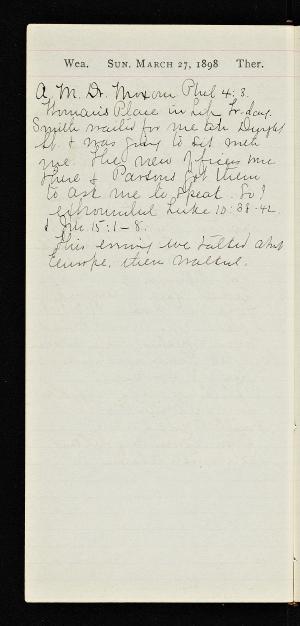 Wea. SUN. MARCH 27, 1898 THER.
A.M. Dr. Moxom Phil 4:3.
Woman's Place in Life to-day.
Smith waited for me at Dwight
St. & was going to sit with
me. The new officers me
there & Parsons got them
to ask me to speak. So I
expounded Luke 10:38-42
& Jno. 15:1-8.
This evening we talked about
Europe, then walked.